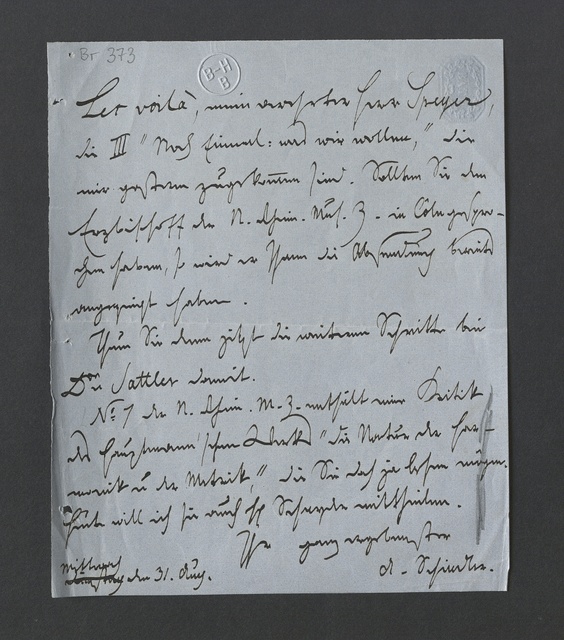 Br 373
B-H
B
Les voilà, mein verehrter Herr Speyer,
die III "Noch Einmal: was wir wollen," die
mir gestern zugekommen sind. Sollten Sie den
Erzbischoff der N. Rhein. Mus. Z. in Cöln gespro-
chen haben, so wird er Ihnen die Absendung bereits
angezeigt haben.
Thun Sie denn jetzt die weiteren Schritte bei
Dr Sattler damit.
No 7 der N. Rhein. M. Z. enthält eine Kritik
des Hauptmann'schen Werks "die Natur der Har-
monik u der Metrik," die Sie doch ja lesen mögen.
Heute will ich sie auch H Schnyder mittheilen.
Ihr ganz ergebenster
A. Schindler.
Mittwoch
den 31. Aug.